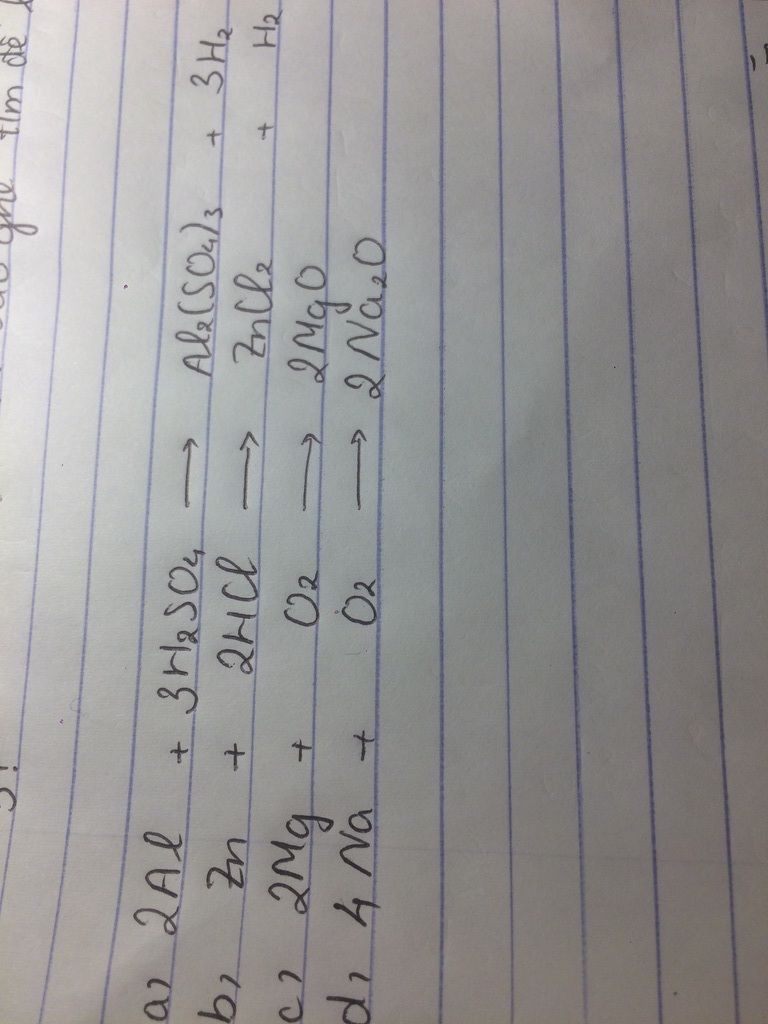 a, 2Al + 3H₂SO₄ → Al₂(SO₄)₃ + 3H₂
b, Zn + 2HCl → ZnCl₂ + H₂
c, 2Mg + O₂ → 2MgO
d, 4Na + O₂ → 2Na₂O